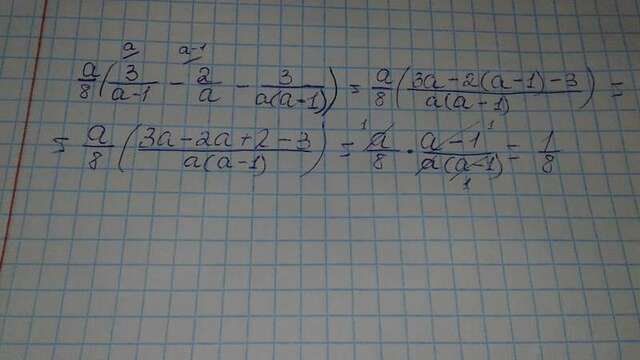 a a-1
a/8 (3/(a-1) - 2/a - 3/(a(a-1))) = a/8 ((3a-2(a-1)-3)/(a(a-1))) =
= a/8 ((3a-2a+2-3)/(a(a-1))) = a/8 · (a-1)/(a(a-1)) = 1/8